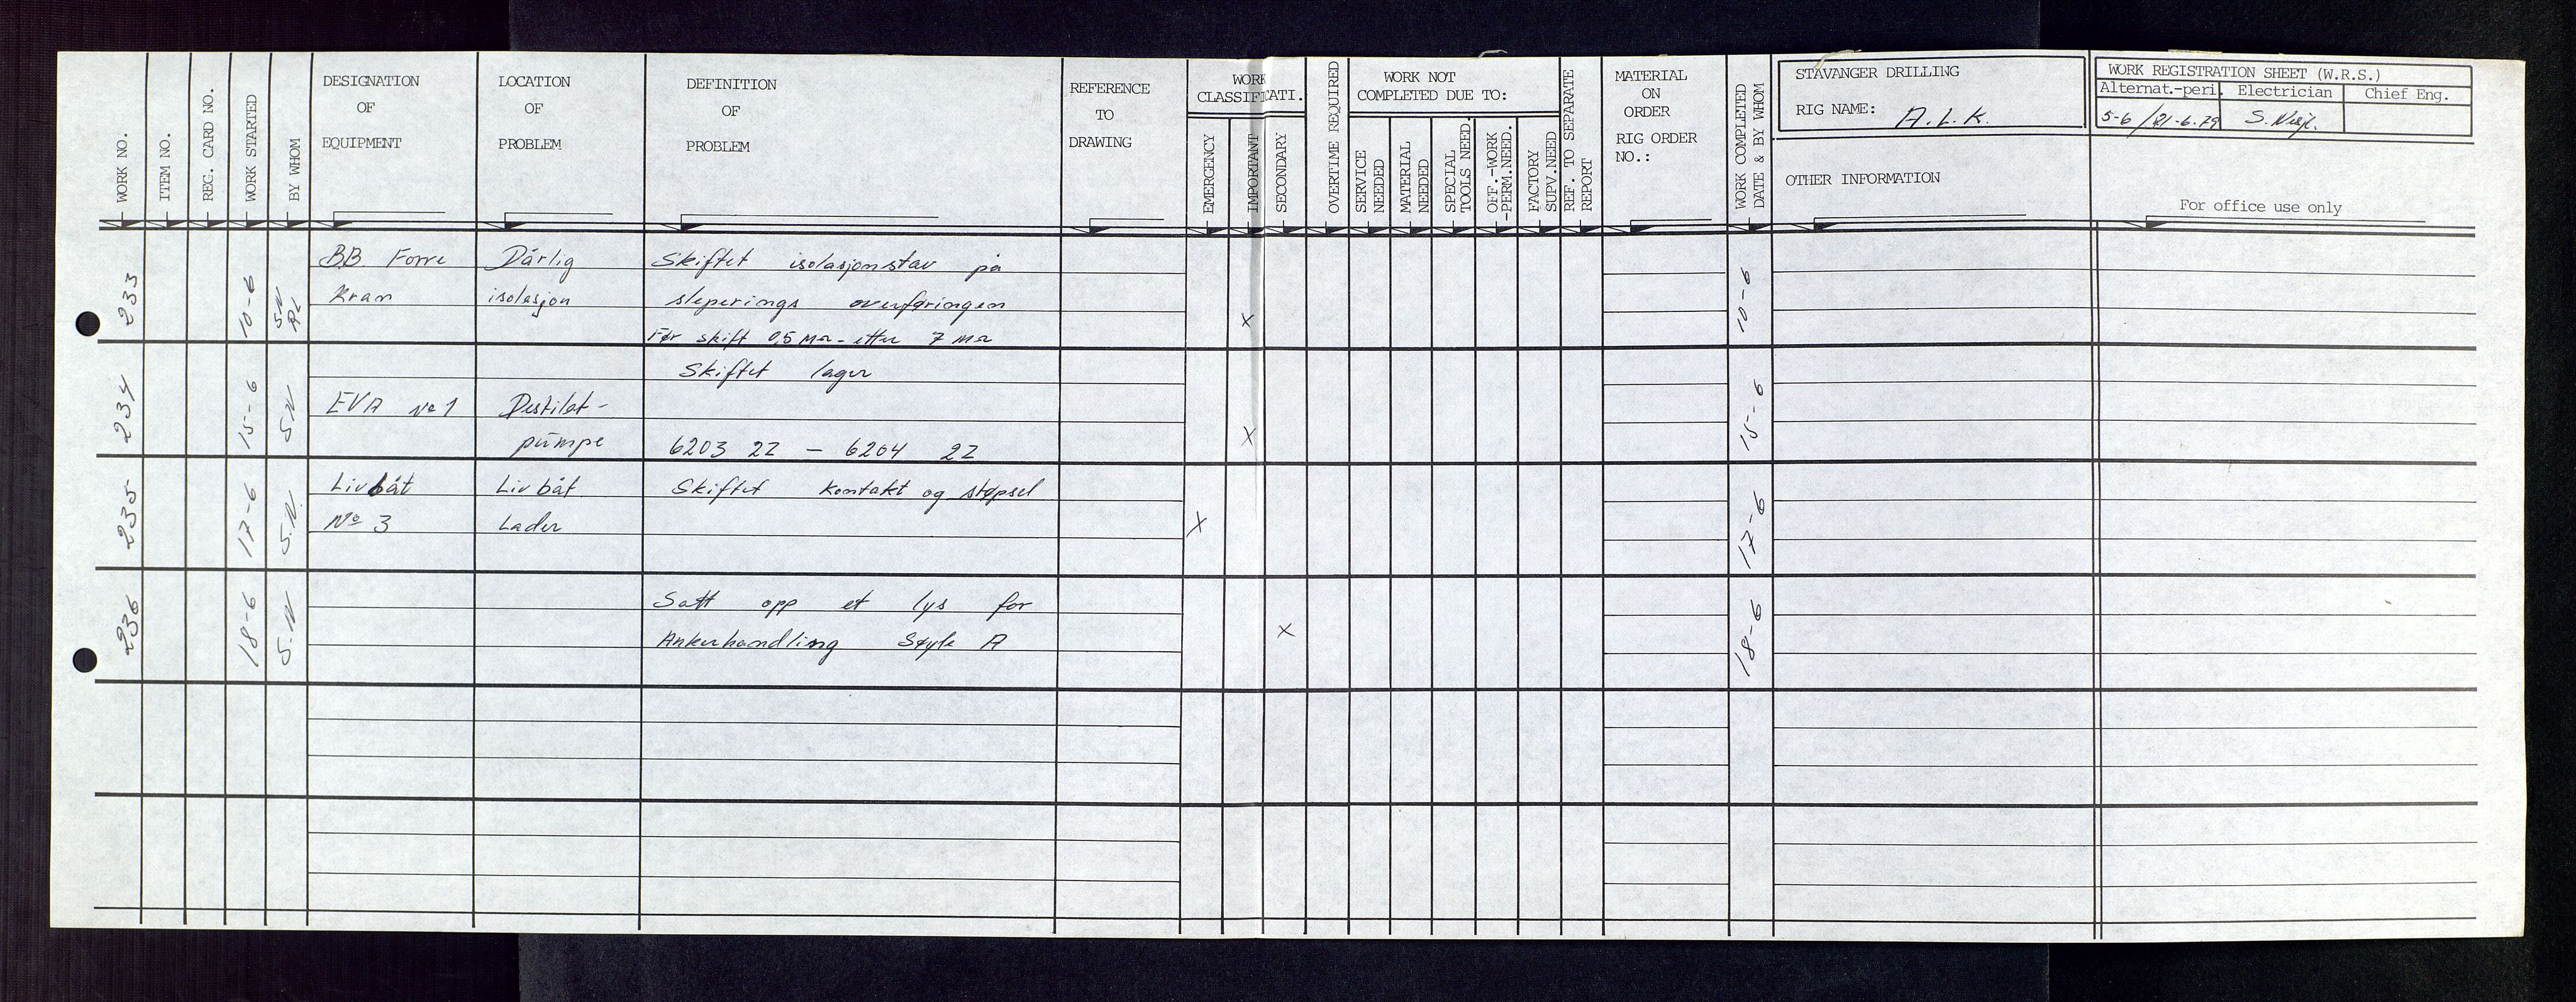 WORK NO.
ITEM NO.
REG. CARD NO.
WORK STARTED
BY WHOM
DESIGNATION
OF
EQUIPMENT
LOCATION
OF
PROBLEM
DEFINITION
OF
PROBLEM
REFERENCE
TO
DRAWING
WORK
CLASSIFICATI.
EMERGENCY
IMPORTANT
SECONDARY
OVERTIME REQUIRED
WORK NOT
COMPLETED DUE TO:
SERVICE
NEEDED
MATERIAL
NEEDED
SPECIAL
TOOLS NEED.
OFF.-WORK
-PERM.NEED.
FACTORY
SUPV.NEED
REF. TO SEPARATE
REPORT
MATERIAL
ON
ORDER
RIG ORDER
NO.:
WORK COMPLETED
DATE & BY WHOM
STAVANGER DRILLING
RIG NAME: A.L.K.
OTHER INFORMATION
WORK REGISTRATION SHEET (W.R.S.)
Alternat.-peri. Electrician Chief Eng.
5-6/21-6.79 S.
For office use only
233 10-6 S.N
BB. Forre Dårlig Skiftet isolasjonstav på
Kran isolasjon sleperings overføringen
X 10-6
Før skift 0,5 MΩ - etter 7 MΩ
234 15-6 S.N
Skiftet lager
EVA No 1 Destilat-
pumpe 6203 2Z - 6204 2Z X 15-6
235 17-6 S.N.
Livbåt Livbåt Skiftet kontakt og støpsel
No 3 Lader X 17-6
236 18-6 S.N
Satt opp et lys for
Ankerhandling Søyle A X 18-6